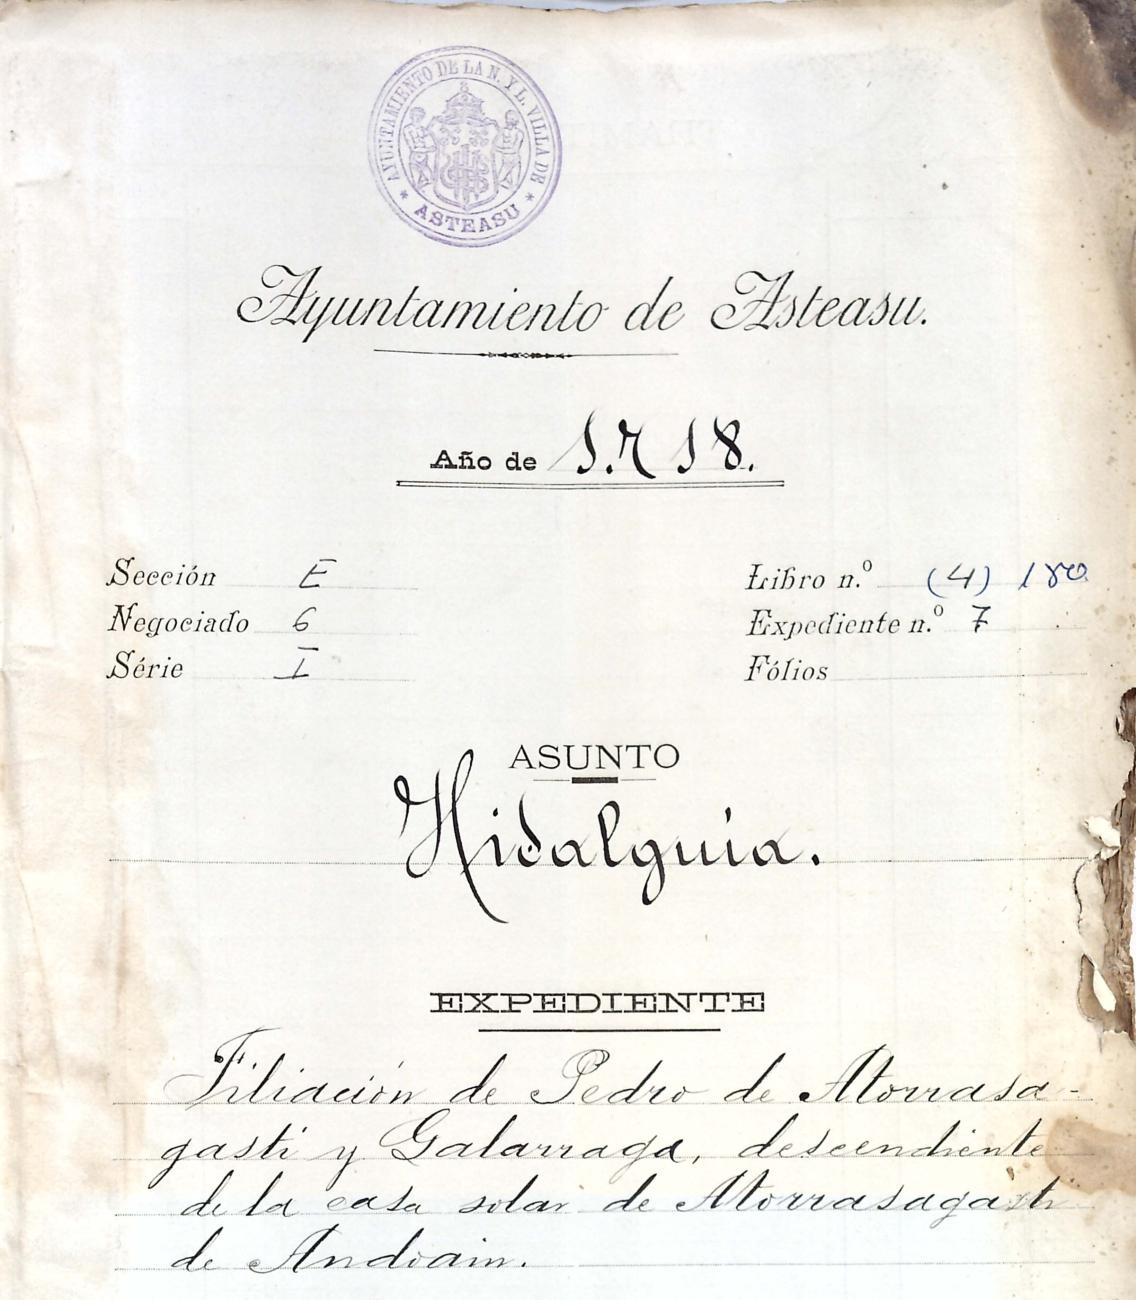 AYUNTAMIENTO DE LA N. Y L. VILLA DE
* ASTEASU *
Ayuntamiento de Asteasu.
Año de 1.718.
Sección E
Libro n.º (4) 180
Negociado 6
Expediente n.º 7
Série I
Fólios
ASUNTO
Hidalguia.
EXPEDIENTE
Filiación de Pedro de Atorrasa-
gasti y Galarraga, descendiente
de la casa solar de Atorrasagasti
de Andoain.